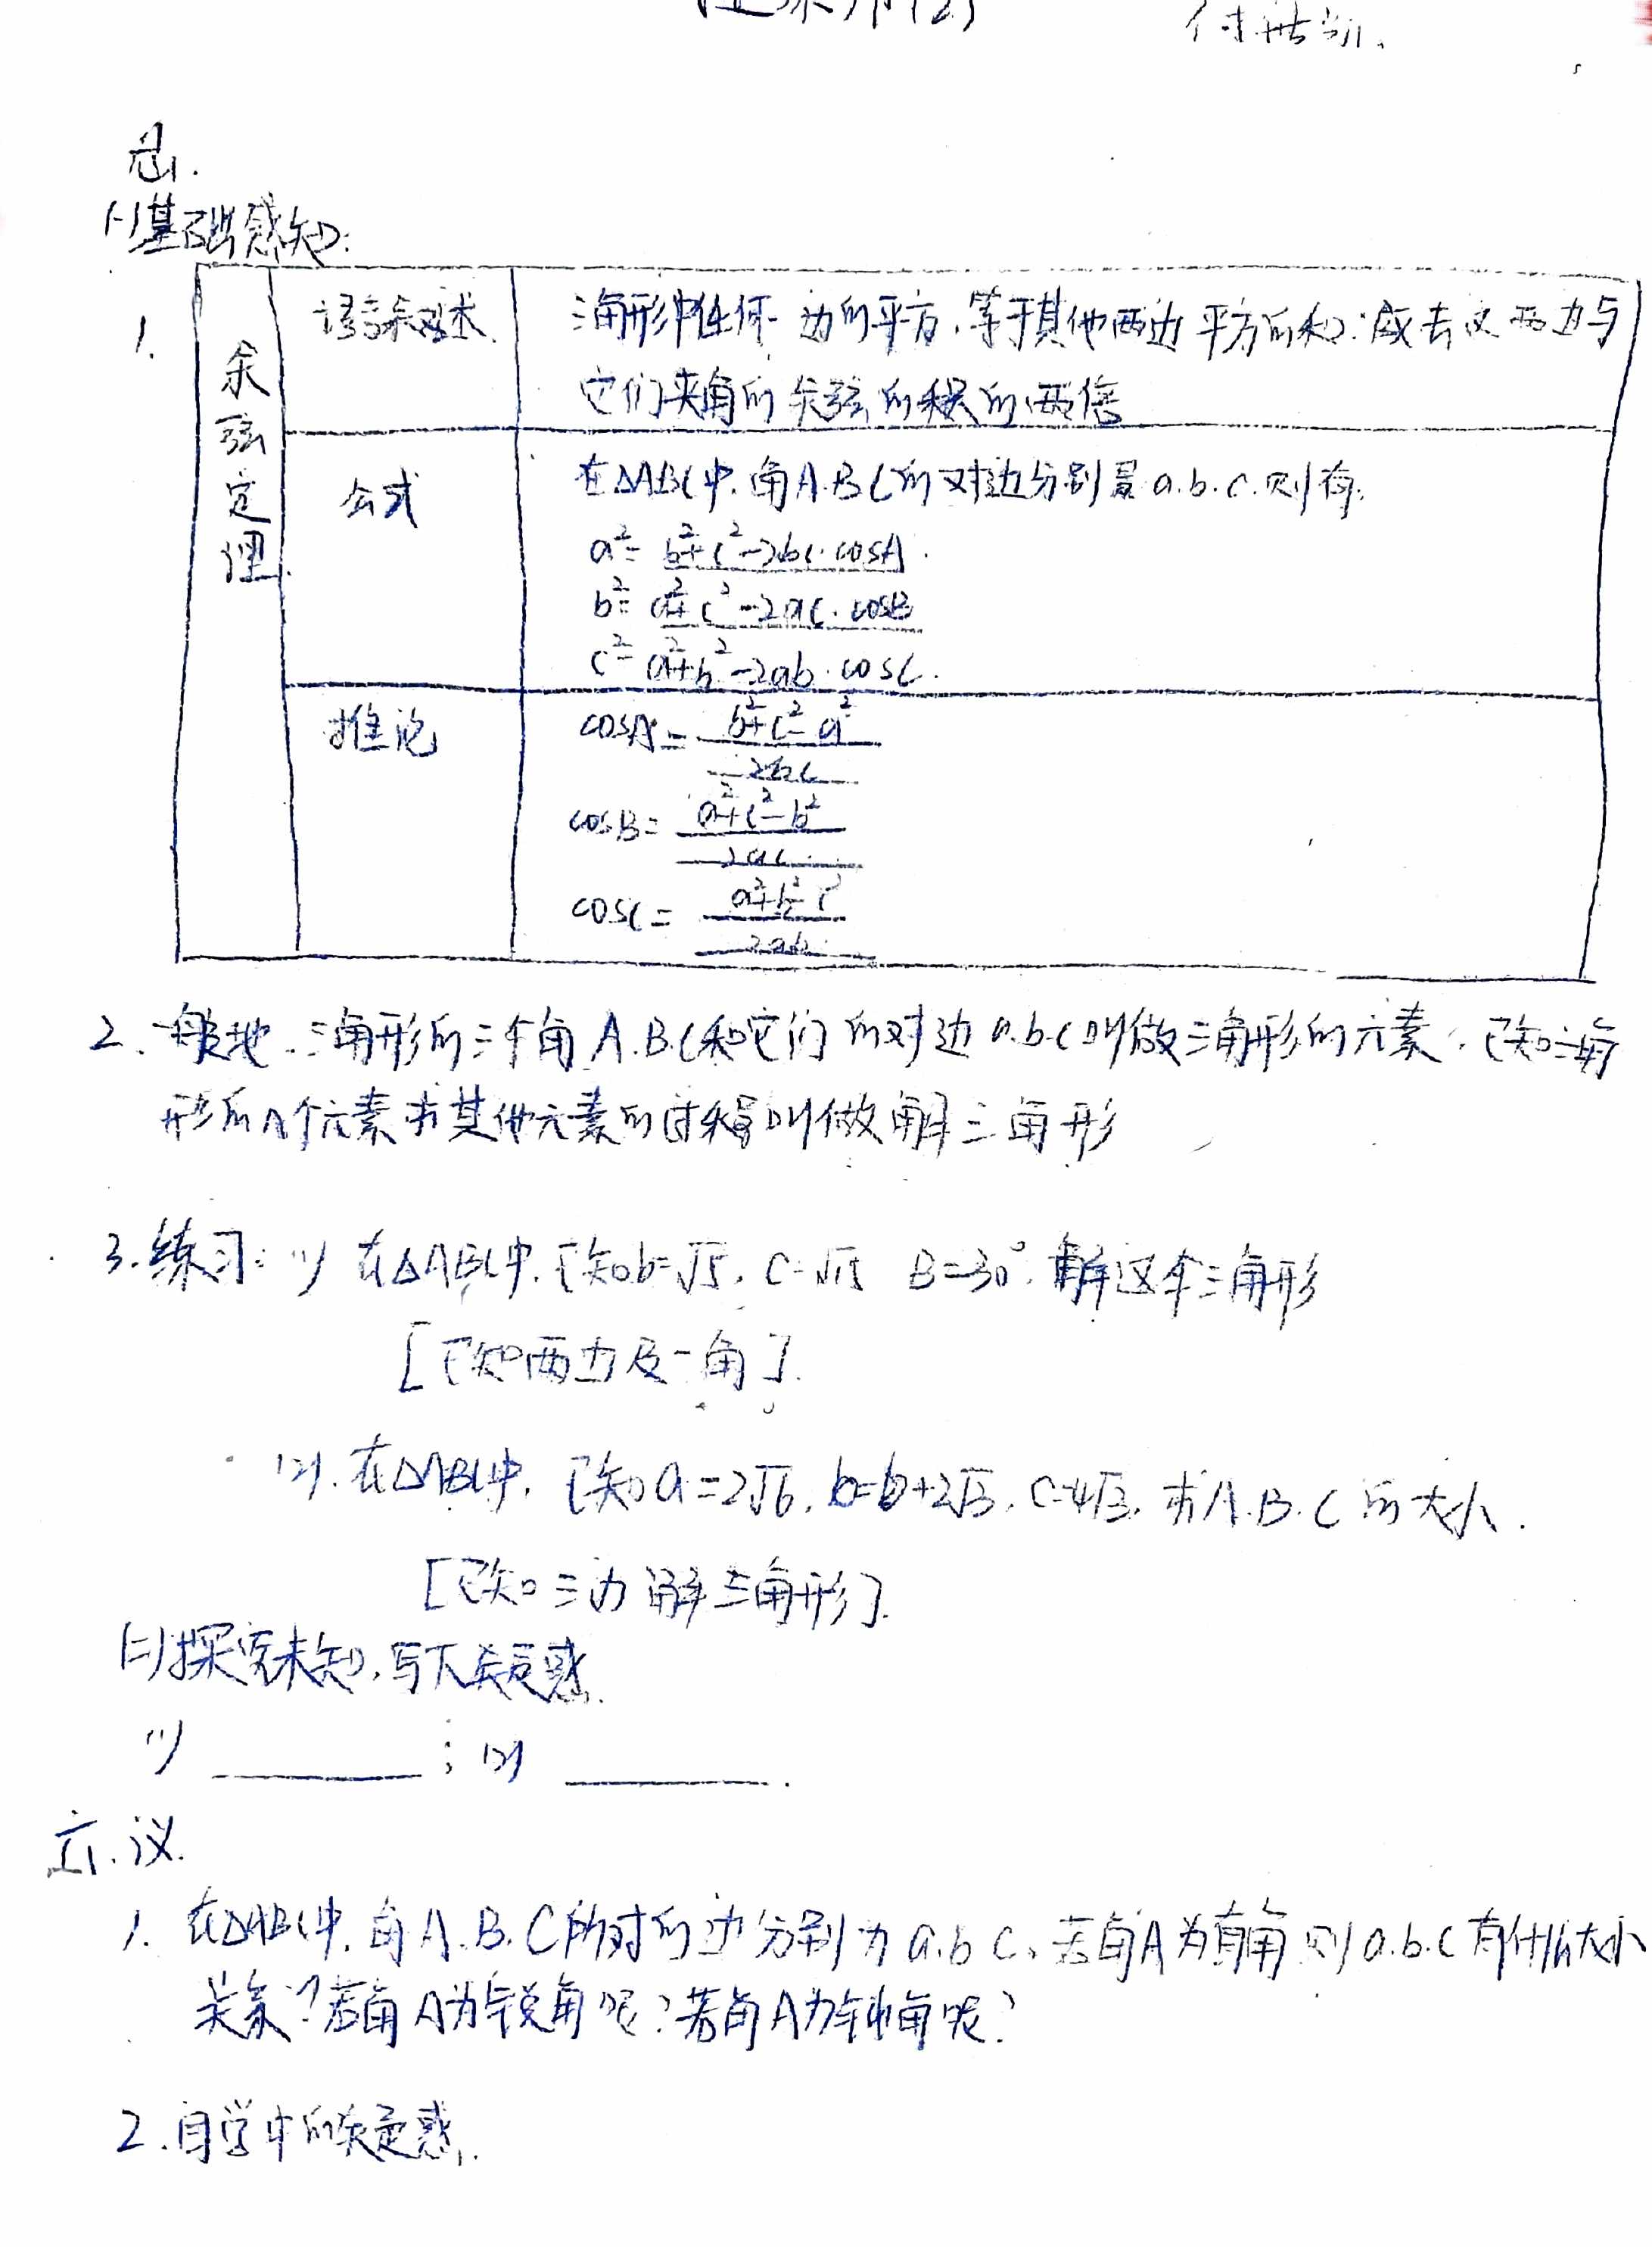 (2)
思.
(一)基础感知:
1.
余弦定理
语言叙述
三角形中任何一边的平方,等于其他两边平方的和.减去这两边与
它们夹角的余弦的积的两倍
公式
在△ABC中.角A.B.C的对边分别是a.b.c.则有:
a²=b²+c²-2bc·cosA.
b²=a²+c²-2ac·cosB
c²=a²+b²-2ab·cosC.
推论
cosA=(b²+c²-a²)/2bc
cosB=(a²+c²-b²)/2ac
cosC=(a²+b²-c²)/2ab
2.一般地.三角形的三个角A.B.C和它们的对边a.b.c叫做三角形的元素,已知三角
形的几个元素求其他元素的过程叫做解三角形
3.练习:(1)在△ABC中.已知b=√5,c=√15 B=30°.解这个三角形
[已知两边及一角].
(2).在△ABC中,已知a=2√6,b=6+2√3,c=4√3,求A.B.C的大小.
[已知三边解三角形].
(二)探究未知,写下疑惑.
(1) ______ ; (2) ______.
六.议.
1.在△ABC中.角A.B.C所对的边分别为a.b c.若角A为直角则a.b.c有什么大小
关系?若角A为锐角呢?若角A为钝角呢?
2.自学中的疑惑.